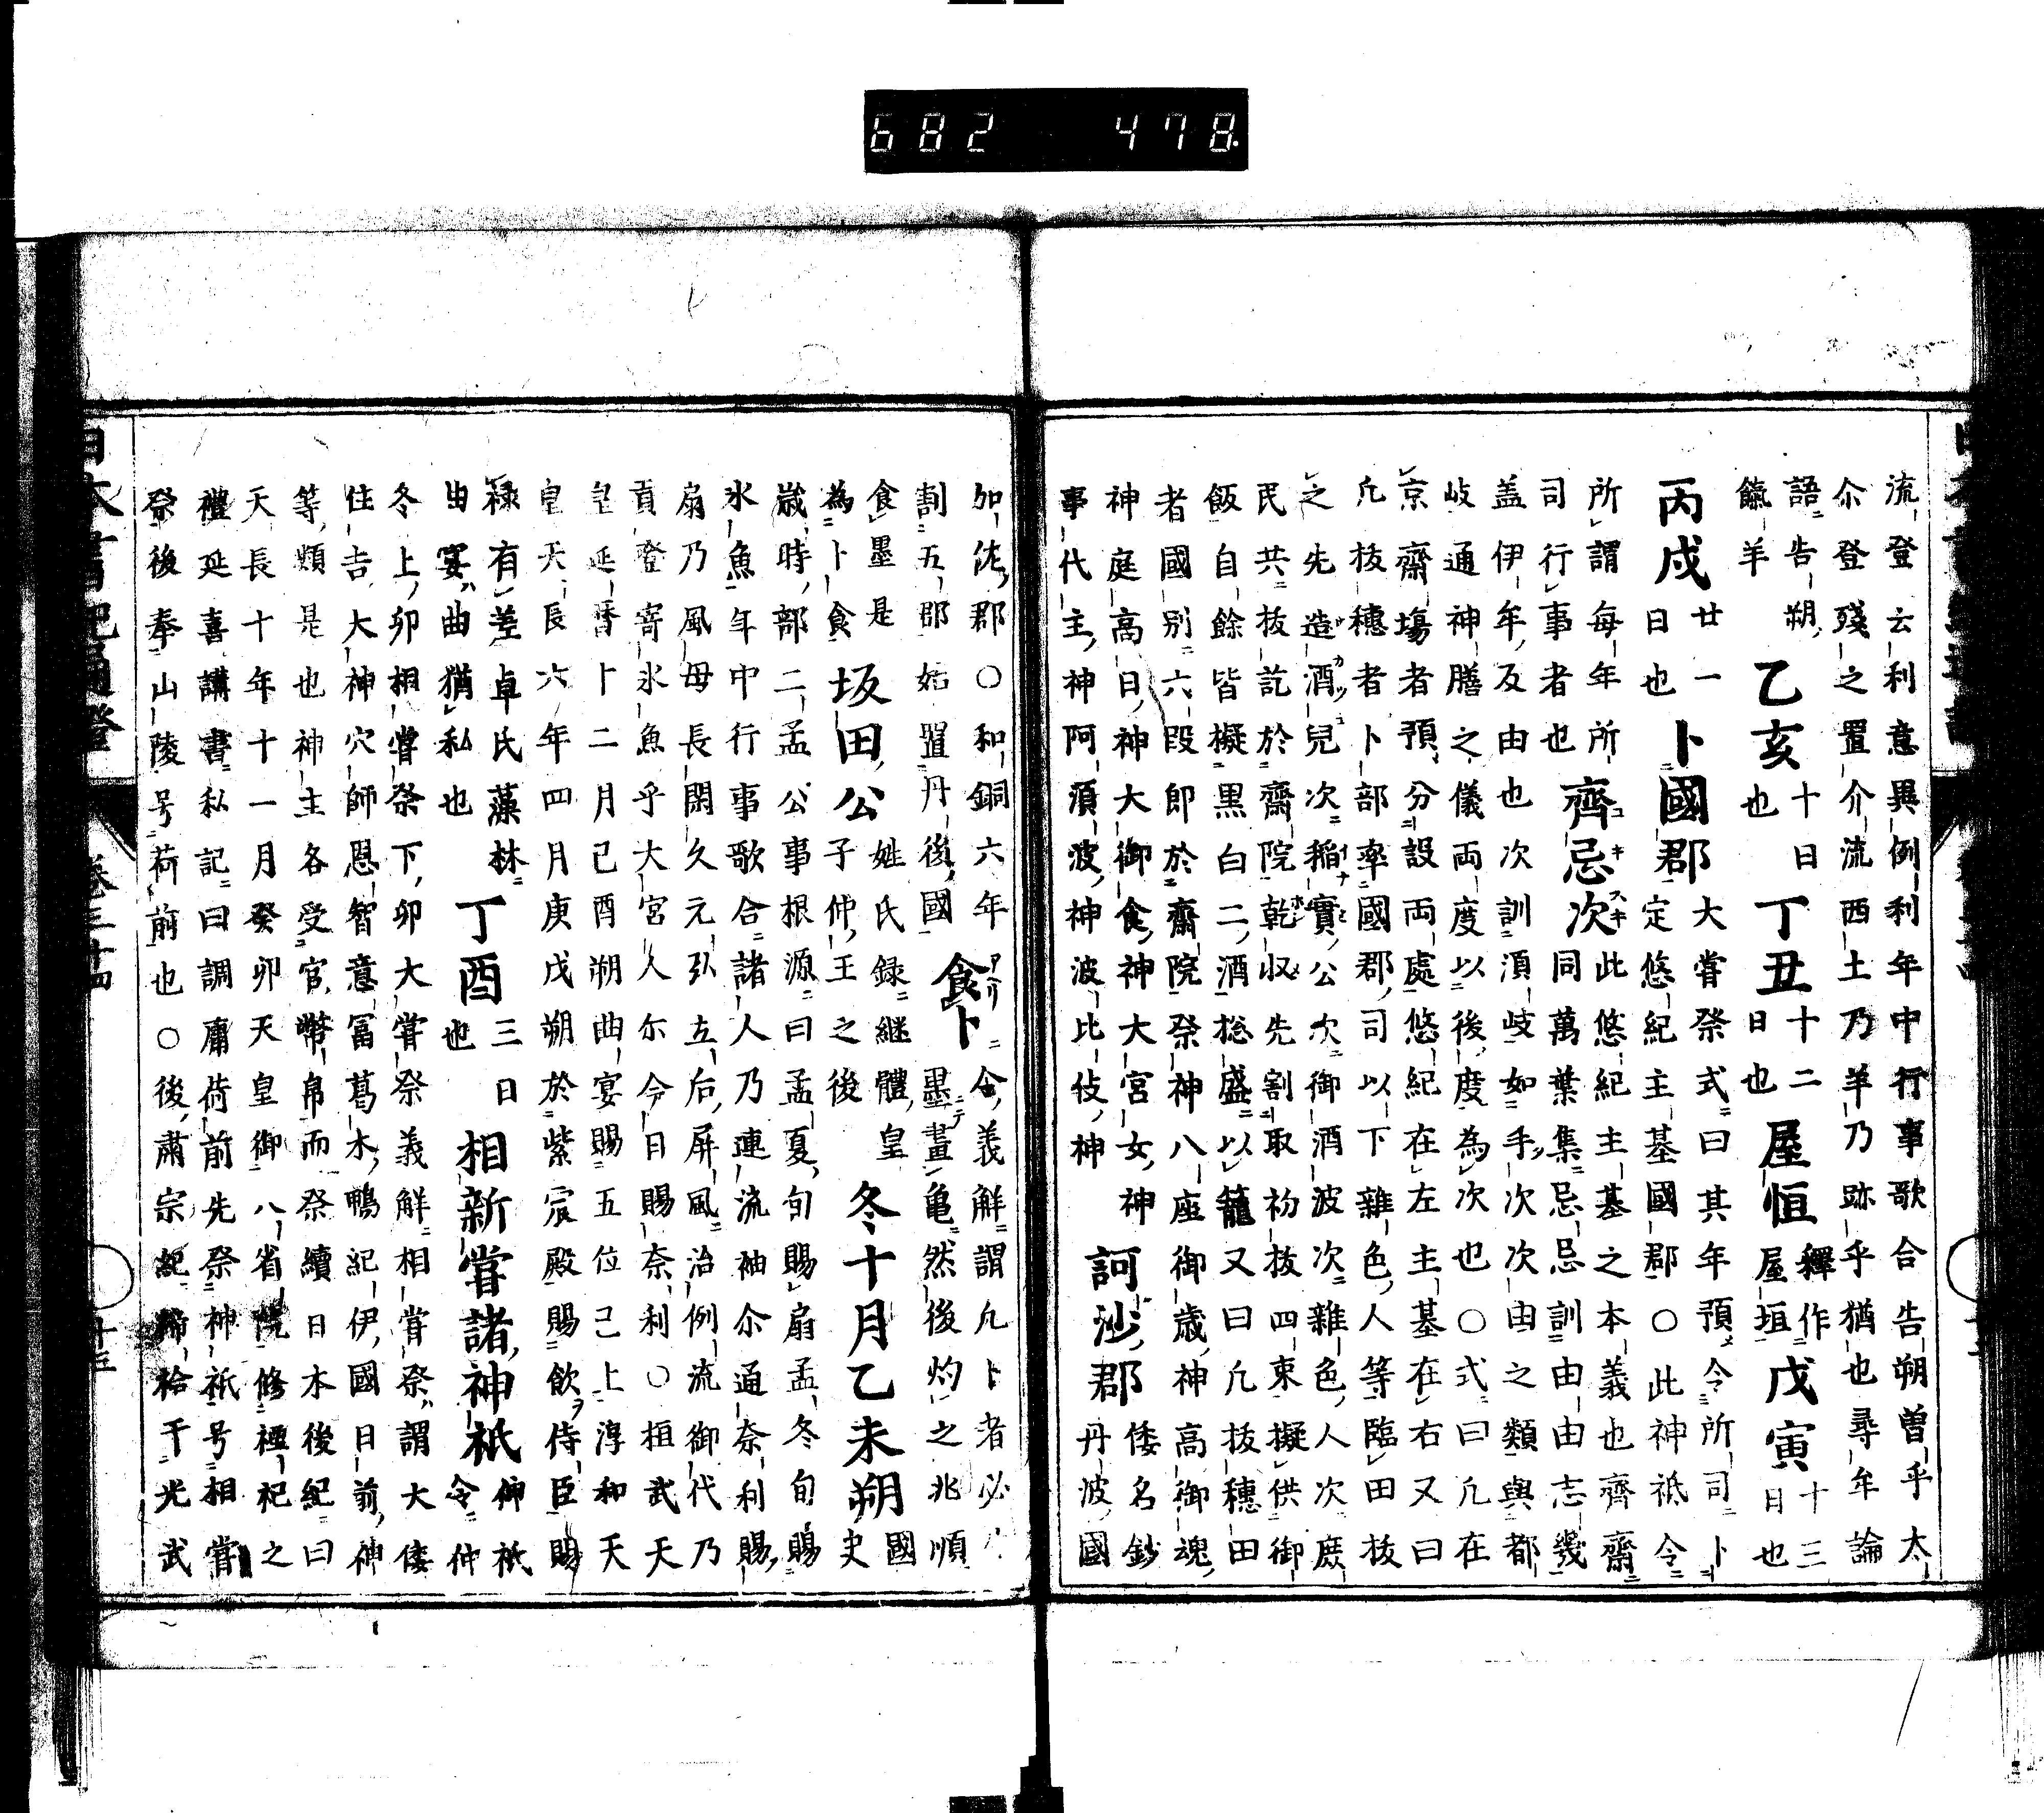 流登云利意異例利年中行事歌合告朔曽乎太
尒登殘之置介流西土乃羊乃跡乎猶也尋牟論
語告朔餼羊 乙亥 十日也 丁丑 十二日也 屋恒 釋作屋垣 戊寅 十三日也
丙戌 廿一日也 卜國郡 大嘗祭式曰其年預令所司卜定悠紀主基國郡〇此神祇令
所謂每年所司行事者也 齊忌次 此悠紀主基之本義也齊齋同萬葉集忌忌訓由由志幾
盖伊年反由也次訓湏岐如手次次由之類與都
岐通神膳之儀両度以後度為次也〇式曰凢在
京齋塲者預分設両處悠紀在左主基在右又曰
凢抜穗者卜部率國郡司以下雜色人等臨田抜
之先造酒兒次稲實公次御酒波次雜色人次庶
民共抜訖於齋院乾収先割取初抜四束擬供御
飯自餘皆擬黒白二酒惣盛以籠又曰凢抜穗田
者國別六段即於齋院祭神八座御歳神高御魂
神庭高日神大御食神大宮女神事代主神阿湏波神波比伎神 訶沙郡 倭名鈔丹波國
加佐郡〇和銅六年割五郡始置丹後國 食卜 令義解謂凢卜者必墨畫亀然後灼之兆順
食墨是為卜食 坂田公 姓氏録継體皇子仲王之後 冬十月乙未朔 國史
歳時部二孟公事根源曰孟夏旬賜扇孟冬旬賜
氷魚年中行事歌合諸人乃連流袖尒通奈利賜
扇乃風母長閑久元弘立后屏風治例流御代乃
貢登寄氷魚乎大宮人尓今日賜奈利〇桓武天
皇延暦十二月己酉朔曲宴賜五位己上淳和天
皇天長六年四月庚戌朔於紫宸殿賜飲侍臣賜
禄有差卓氏藻林曲宴曲猶私也 丁酉 三日也 相新嘗諸神祇 神祇令仲
冬上卯相嘗祭下卯大嘗祭義解相嘗祭謂大倭
住吉大神穴師恩智意冨葛木鴨紀伊國日前神
等類是也神主各受官幣帛而祭續日本後紀曰
天長十年十一月癸卯天皇御八省院修禋祀之
禮延喜講書私記曰調庸荷前先祭神祇号相嘗
祭後奉山陵号荷前也〇後肅宗紀禘祫干光武
日本書紀通證 卷三十四 十三
682 478